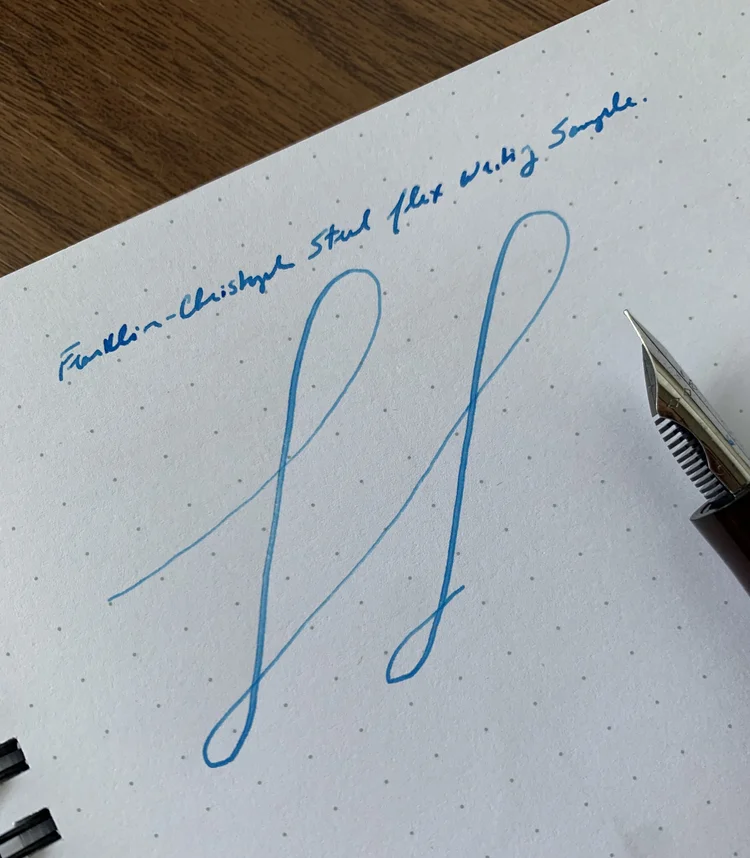 Franklin-Christoph Steel flex Writing Sample.
ff